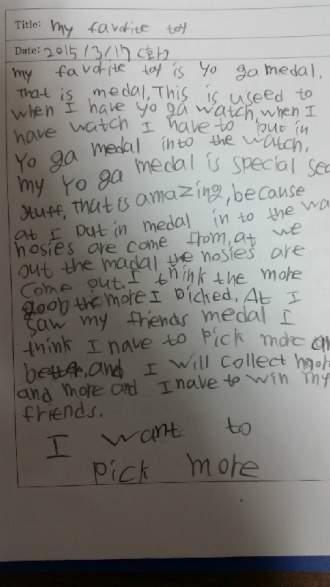 Title: my favorite toy
Date: 2015/3/17 (화)
my favorite toy is Yo ga medal.
That is medal, This is useed to
when I have yo ga watch, when I
have watch I have to put in
Yo ga medal into the watch.
my Yo ga medal is special sec
stuff, That is amazing, because
at I put in medal in to the wa
nosies are come from, at we
out the madal the nosies are
come out. I think the more
goob the more I picked. At I
saw my friends medal I
think I have to pick more an
better. and I will collect more
and more and I have to win my
friends.
I want to
pick more